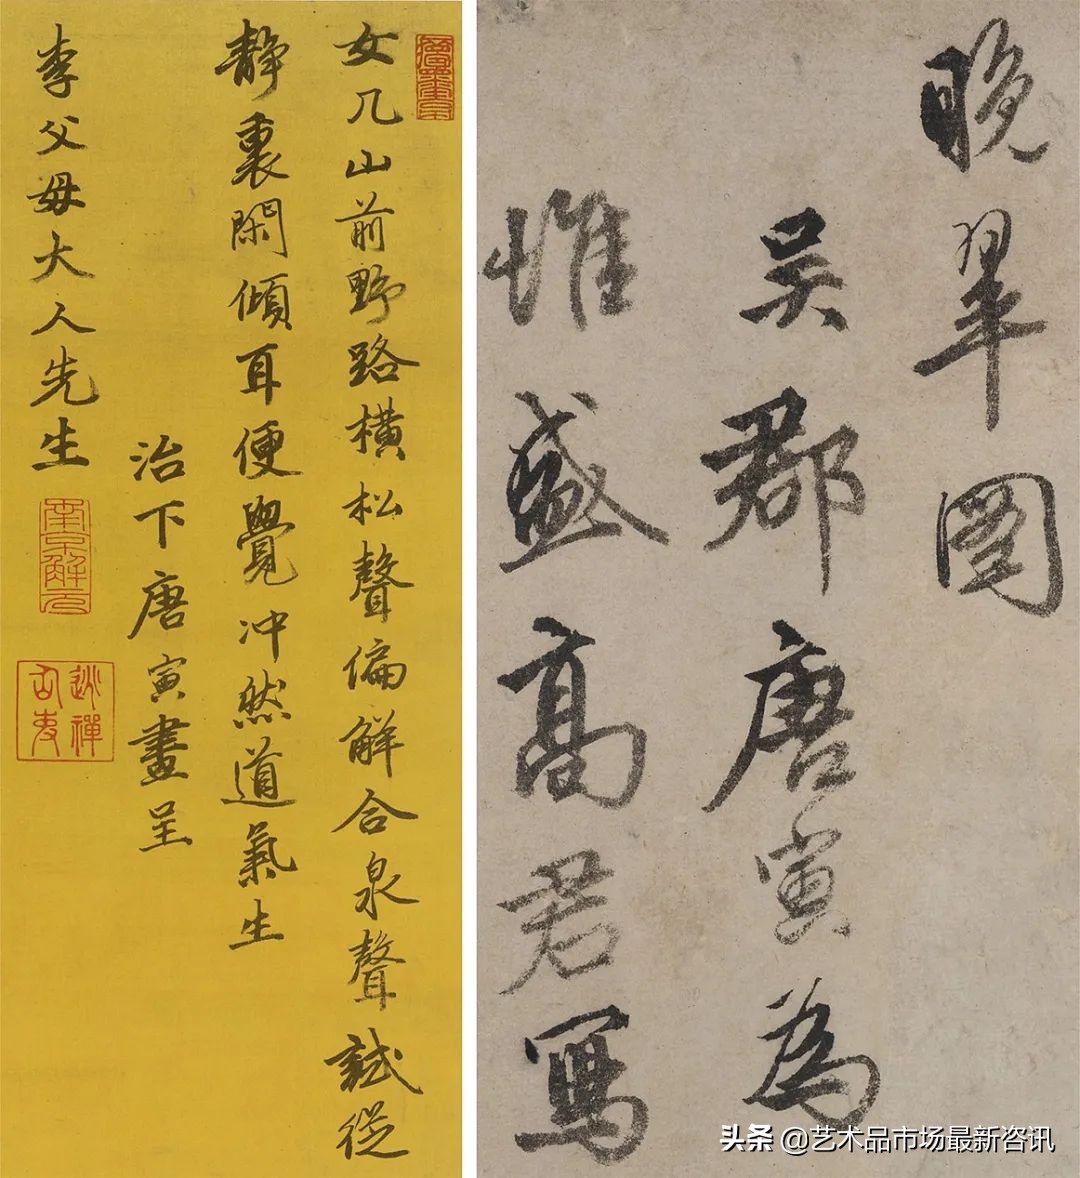 女几山前野路橫松聲偏解合泉聲試從
靜裏閑傾耳便覺冲然道氣生
治下唐寅畫呈
李父母大人先生
南京解元
逃禪仙吏
晚翠圖
吳郡唐寅為
惟盛高君寫
头条 @艺术品市场最新咨讯